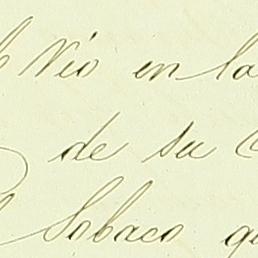 Vio en la
de su
Sobaco qu